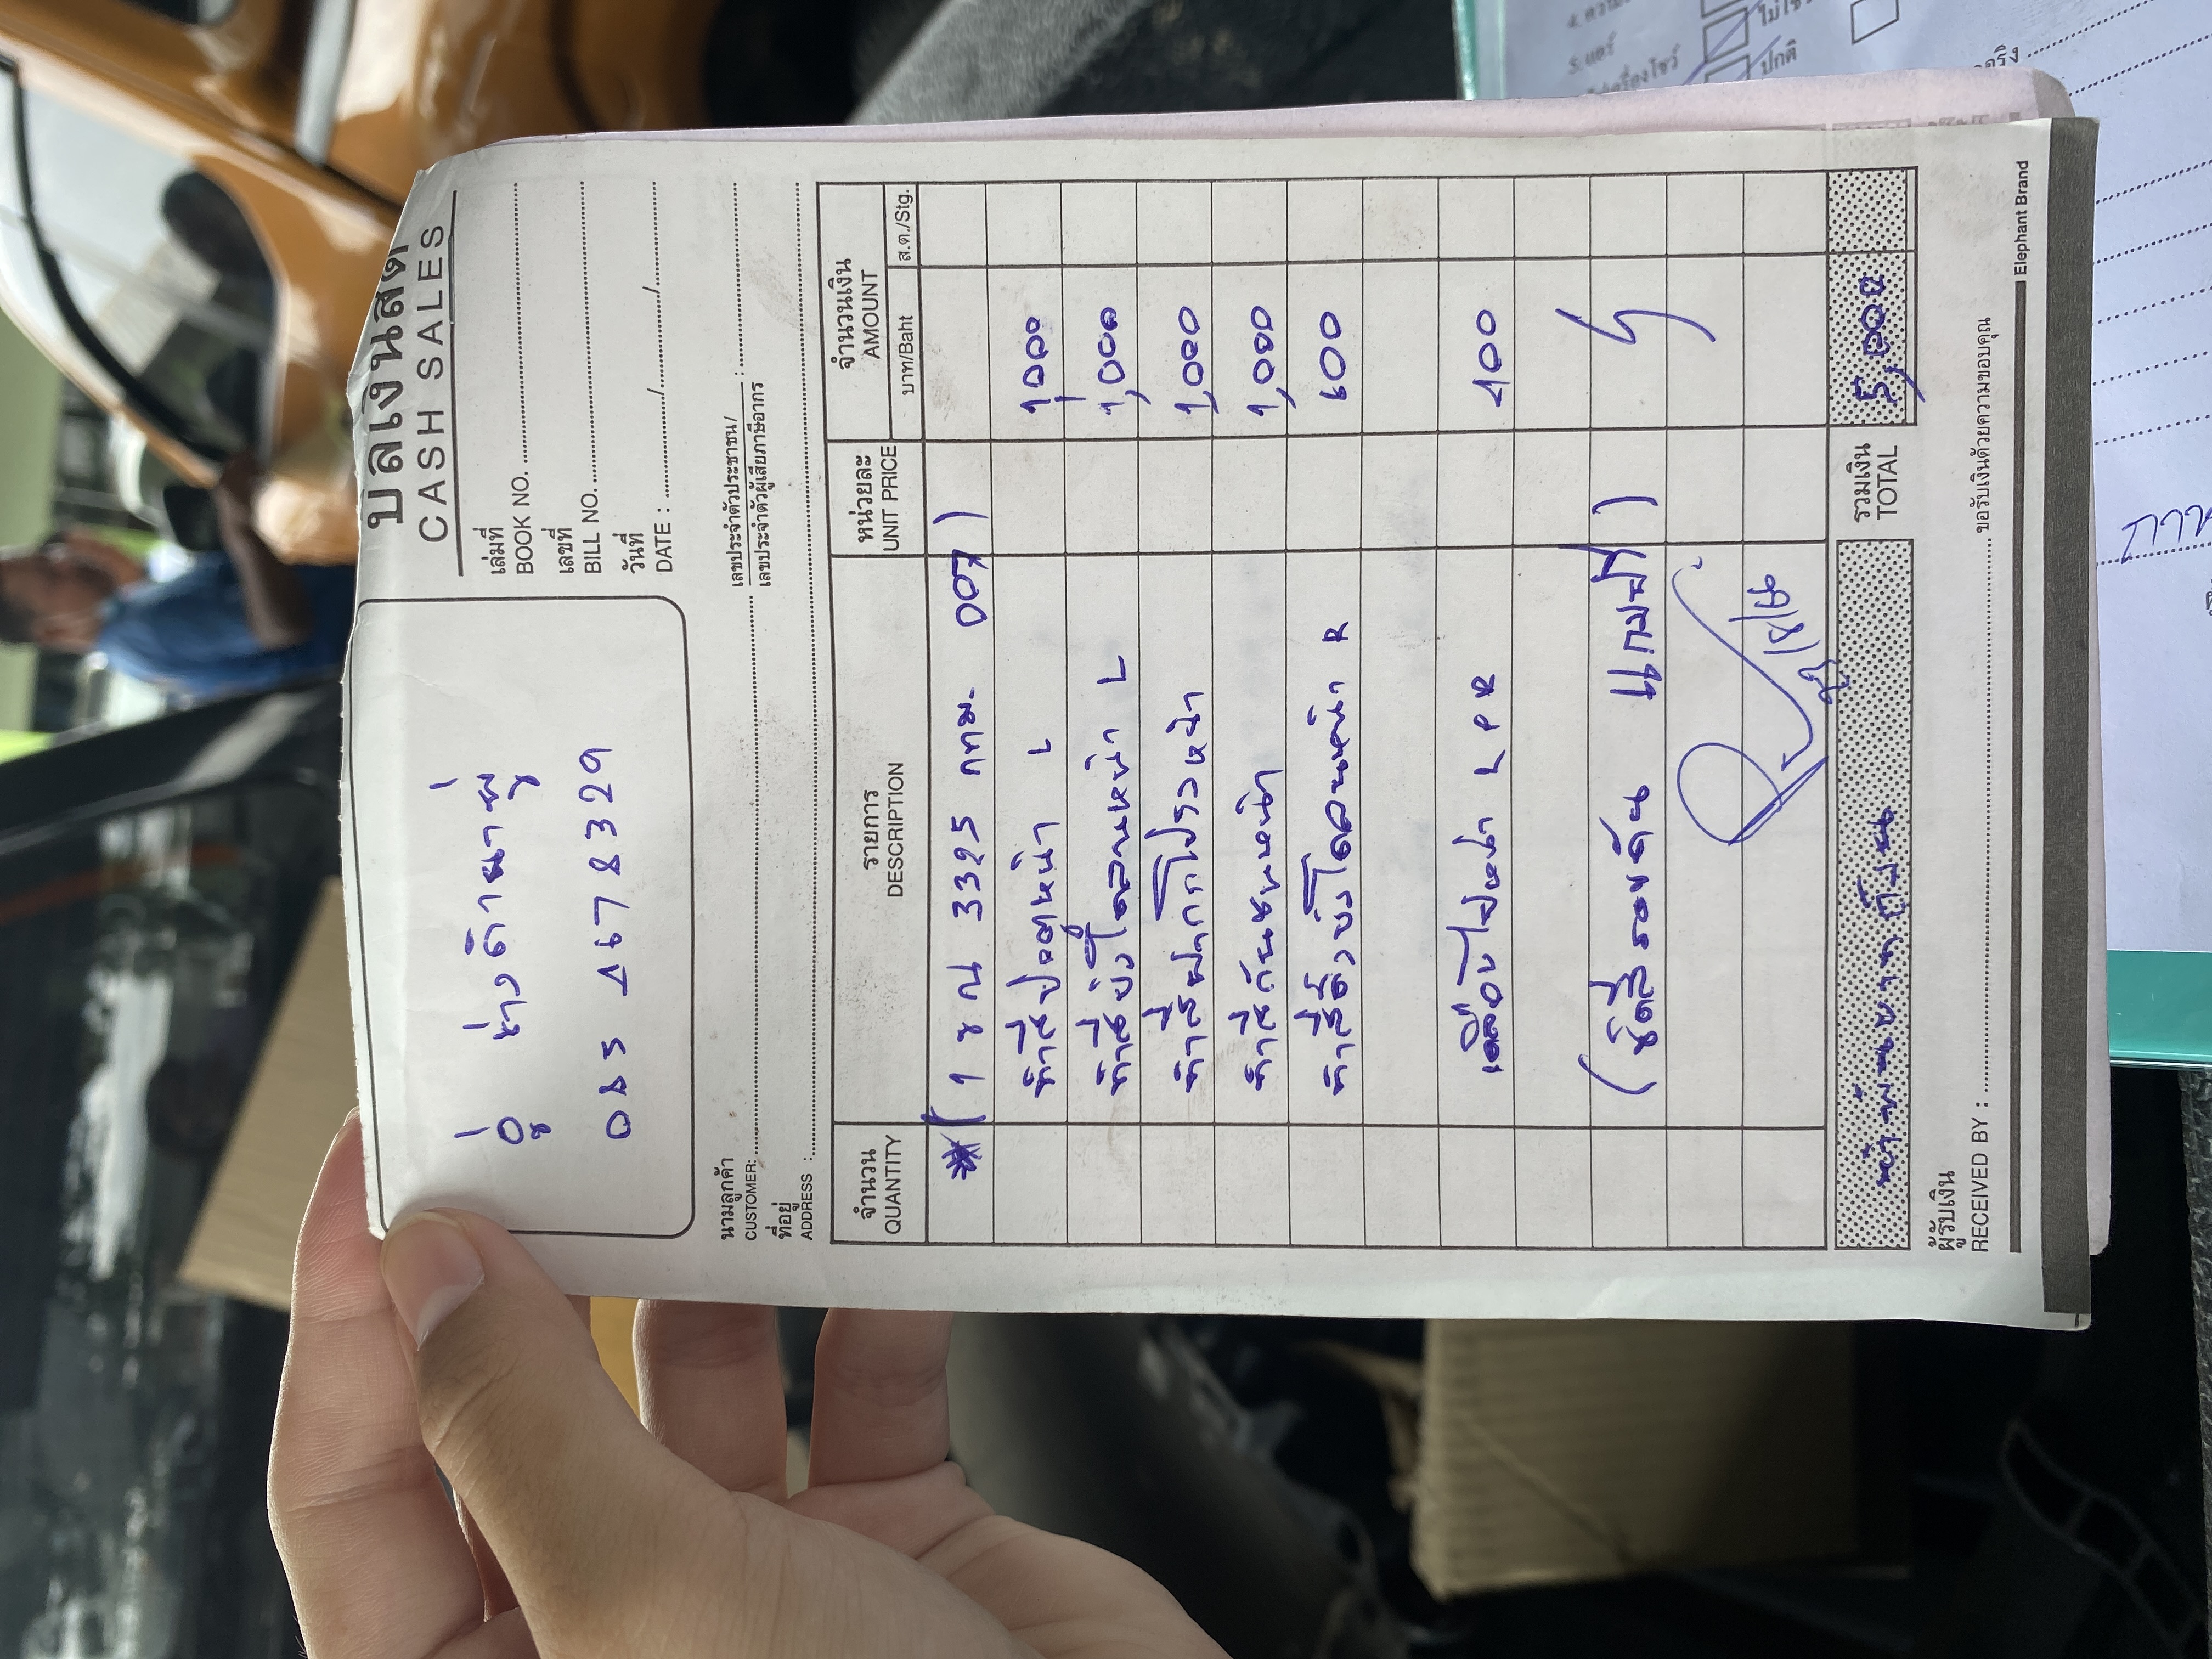 บิลเงินสด
CASH SALES
อู่ ช่างดำนาพู่
085 4678329
เล่มที่
BOOK NO.
เลขที่
BILL NO.
วันที่
DATE : / /
นามลูกค้า
CUSTOMER:
เลขประจำตัวประชาชน/
เลขประจำตัวผู้เสียภาษีอากร :
ที่อยู่
ADDRESS :
จำนวน QUANTITY รายการ DESCRIPTION หน่วยละ UNIT PRICE จำนวนเงิน AMOUNT
บาท/Baht ส.ต./Stg.
* ( 1 ขณ 3395 กทม. 007 )
ทำสีประตูหน้า L 1,000
ทำสีบังโคลนหน้า L 1,000
ทำสีฝากระโปรงหน้า 1,000
ทำสีกันชนหน้า 1,000
ทำสีคิ้วบังโคลนหน้า R 600
เคลือบไฟหน้า L R 400
( ชุดสีรอบคัน )
ห้าพันบาทถ้วน
รวมเงิน
TOTAL
5,000
ผู้รับเงิน
RECEIVED BY : ขอรับเงินด้วยความขอบคุณ
Elephant Brand
5. แอร์
ปกติ